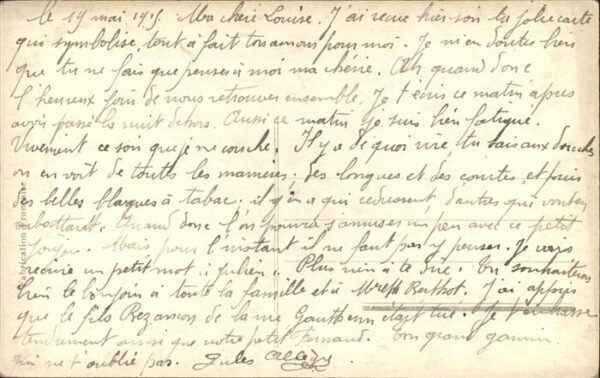 le 19 mai 1915. Ma cherie Louise. J'ai recue hier soir ta jolie carte
qui symbolise tout à fait ton amour pour moi. Je m'en doutes bien
que tu ne fais que penser à moi ma chérie. Ah quand donc
l'heureux jour de nous retrouver ensemble. Je t'écris ce matin après
avoir passé la nuit dehors. Aussi ce matin je suis bien fatigué.
Vivement ce soir que je me couche. Il y a de quoi rire, tu sais aux douches
on en voit de toutes les manières: des longues et des courtes, et puis
des belles blagues à tabac. il y en a qui redressent, d'autres qui vont en
Quand donc l'on pourra s'amuser un peu avec ce petit
joujou. Mais pour l'instant il ne faut pas y penser. Je vais
un petit mot à Julien. Plus rien à te dire. Tu souhaiteras
bien le bonjour à toute la famille et à Berthot. J'ai appris
que le fils de la rue était tué. Je t'embrasse
tendrement ainsi que notre petit Fernand. ton grand gamin
qui ne t'oublie pas. Jules
Fabrication Française